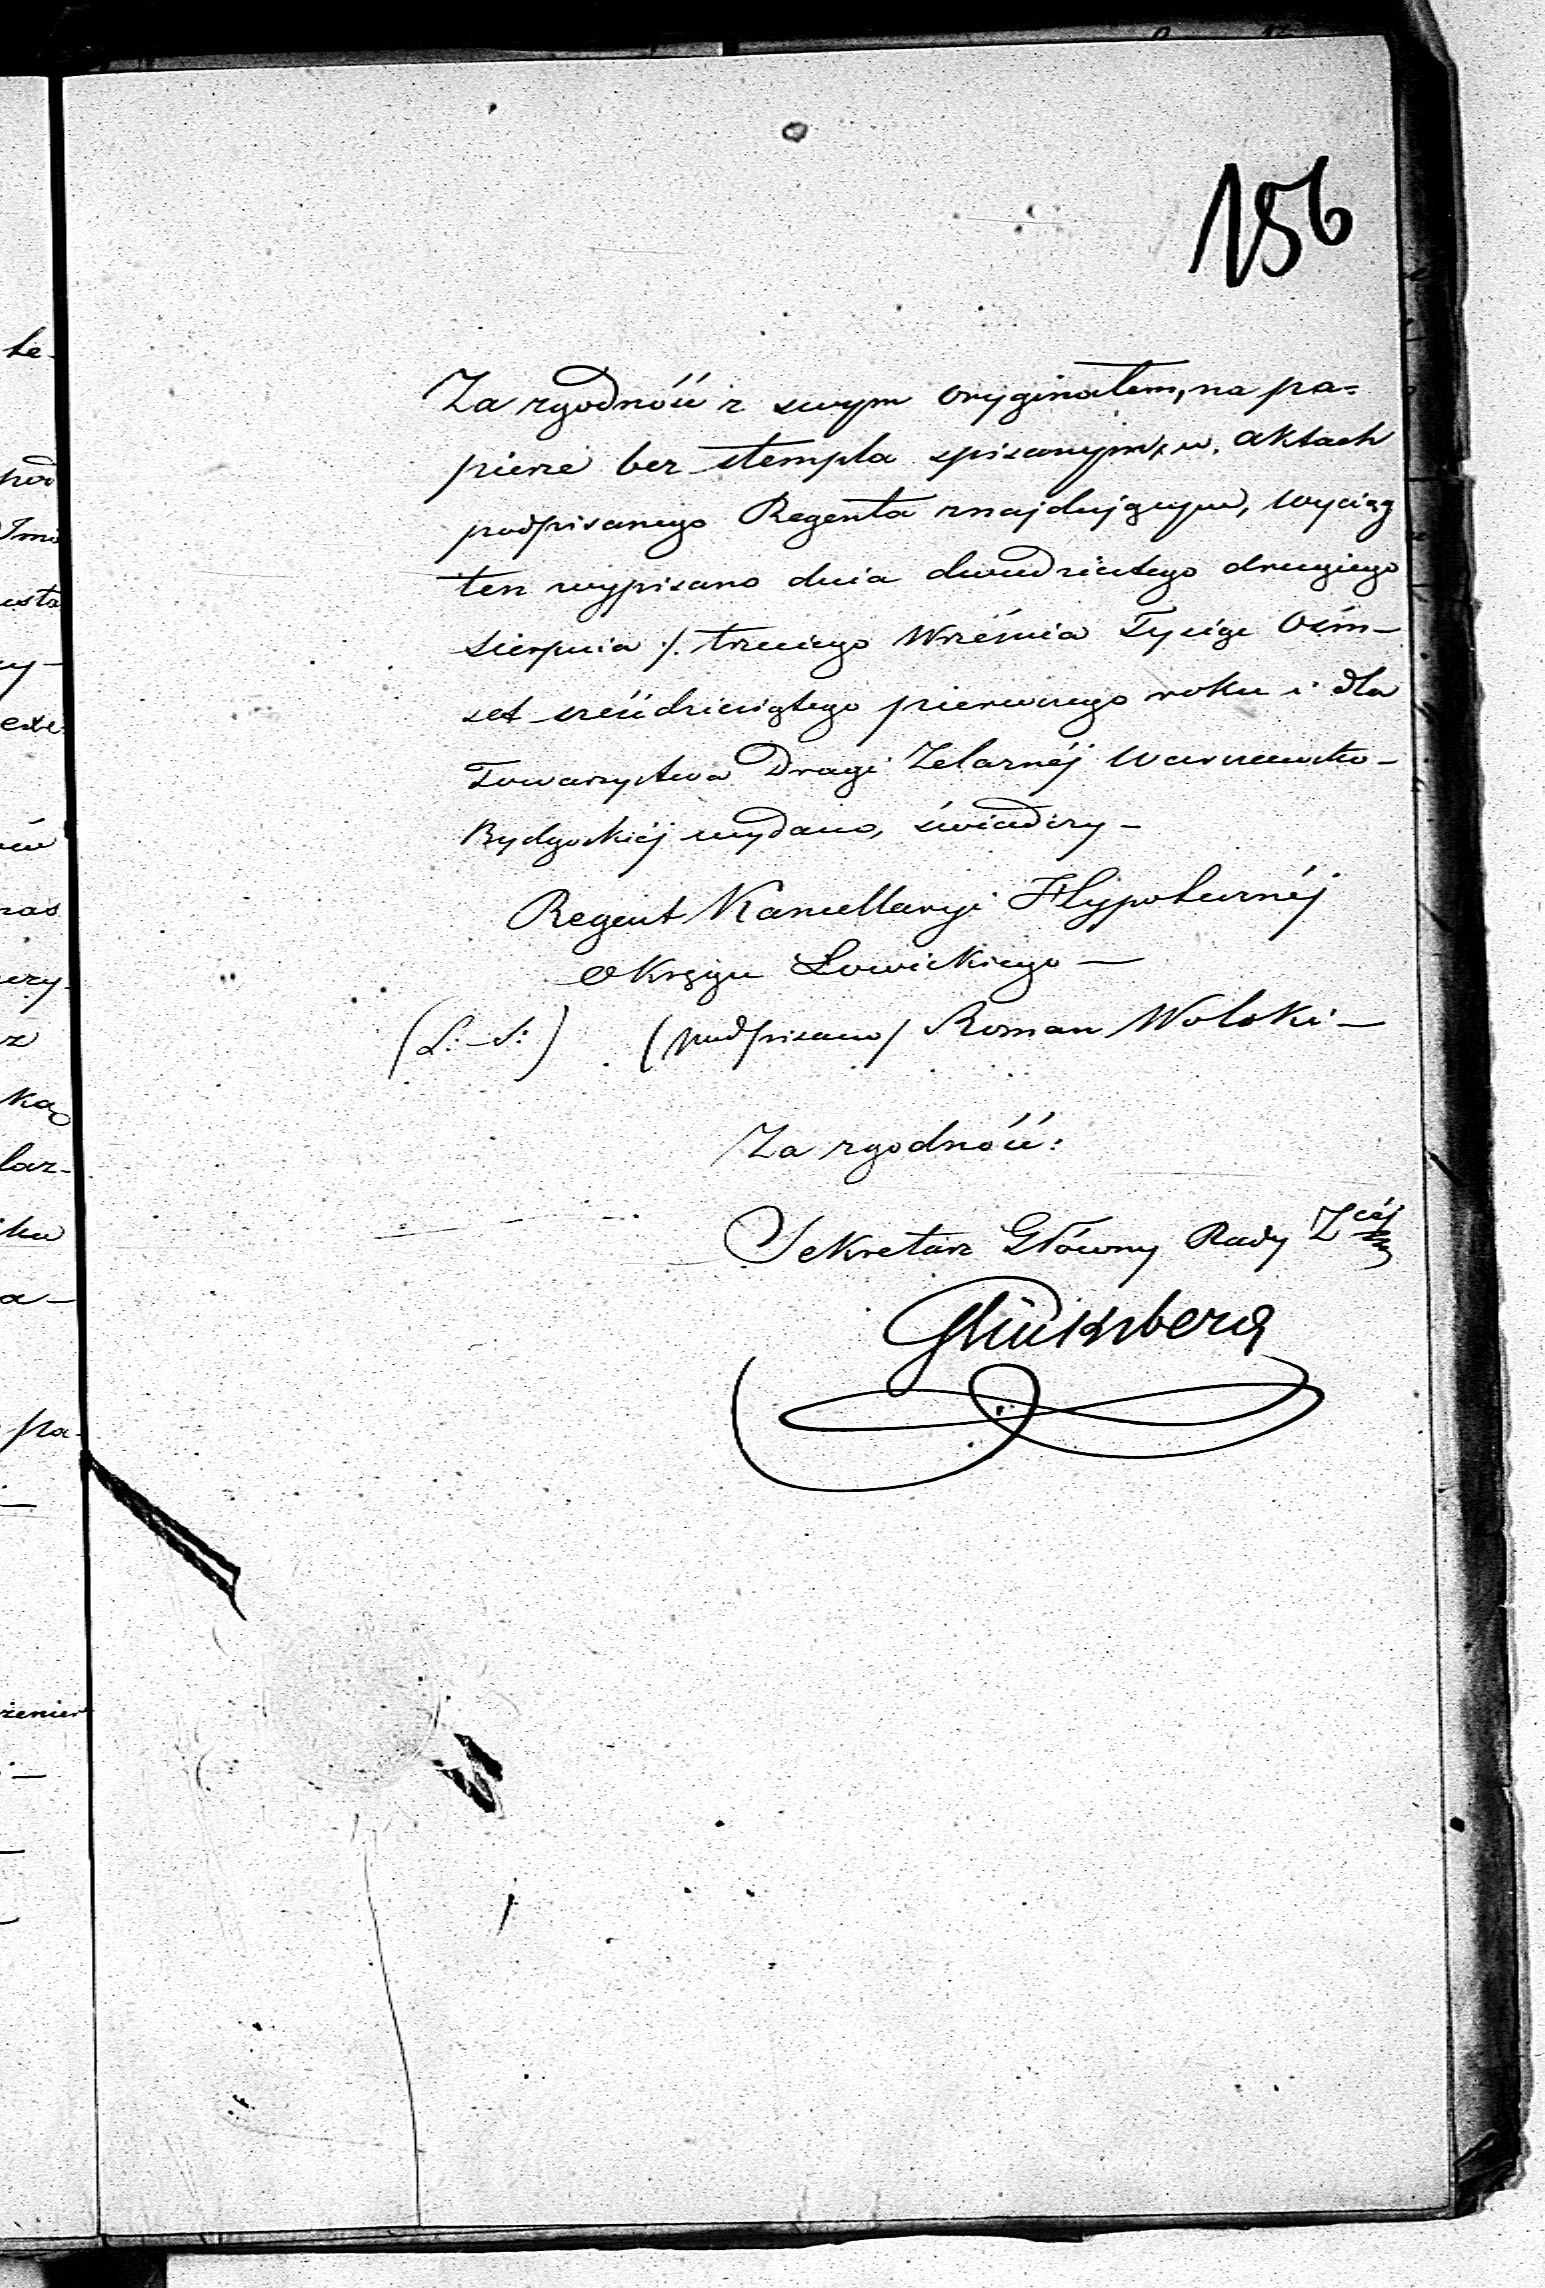 156
Za zgodność z swym oryginałem, na pa=
pierze bez stempla spisanym, w aktach
podpisanego Regenta znajdującym, wyciąg
ten wypisano dnia dwudziestego drugiego
Sierpnia /. trzeciego Września Tysiąc Ośm-
set sześćdziesiątego pierwszego roku i dla
Towarzystwa Drogi Żelaznéj Warszawsko-
Bydgoskiéj wydano, świadczy -
Regent Kancellaryi Hypotecznéj
Okręgu Łowickiego -
(L:-S:) (podpisano) Roman Wolski -
Za zgodność:
Sekretarz Główny Rady
Glücksberg